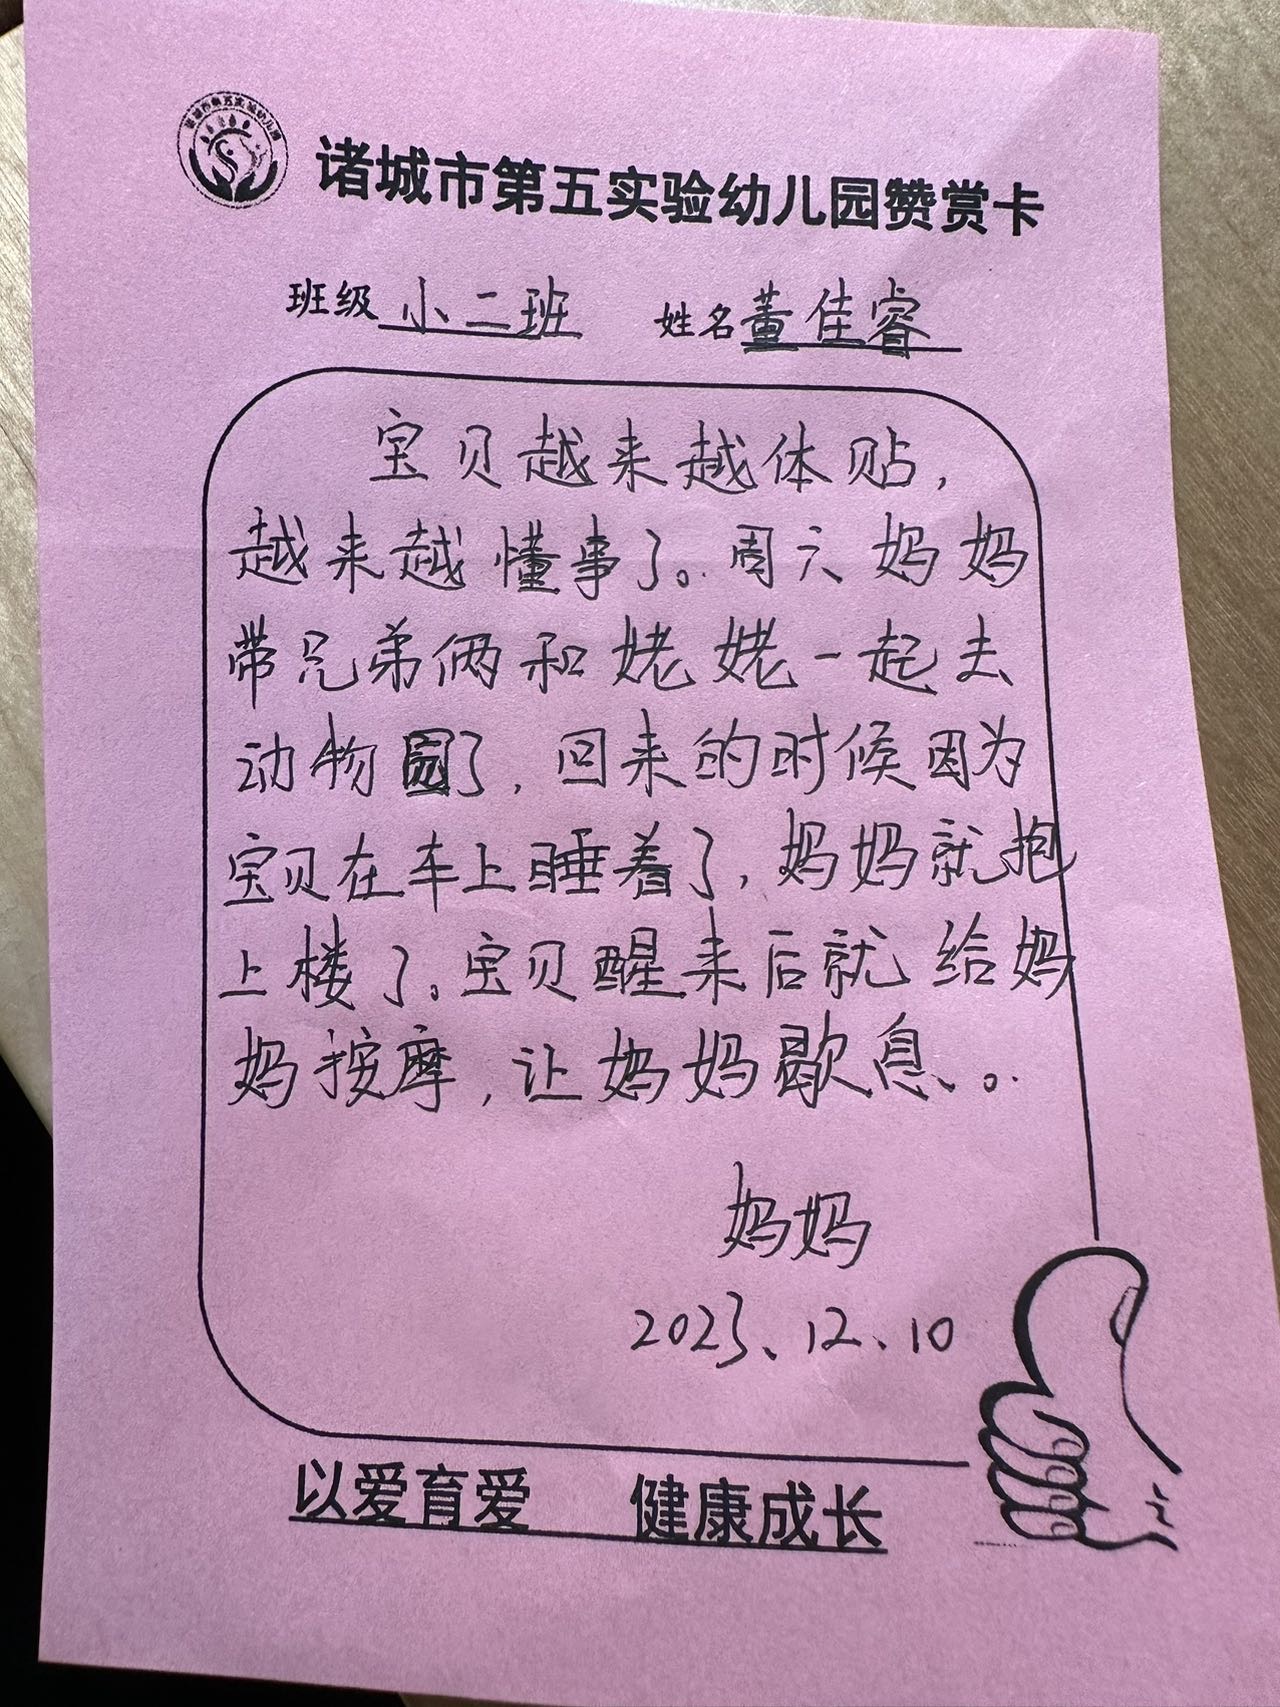 诸城市第五实验幼儿园
诸城市第五实验幼儿园赞赏卡
班级 小二班 姓名 董佳睿
宝贝越来越体贴，
越来越懂事了。周六妈妈
带兄弟俩和姥姥一起去
动物园了，回来的时候因为
宝贝在车上睡着了，妈妈就抱
上楼了。宝贝醒来后就给妈
妈按摩，让妈妈歇息。
妈妈
2023、12、10
以爱育爱 健康成长